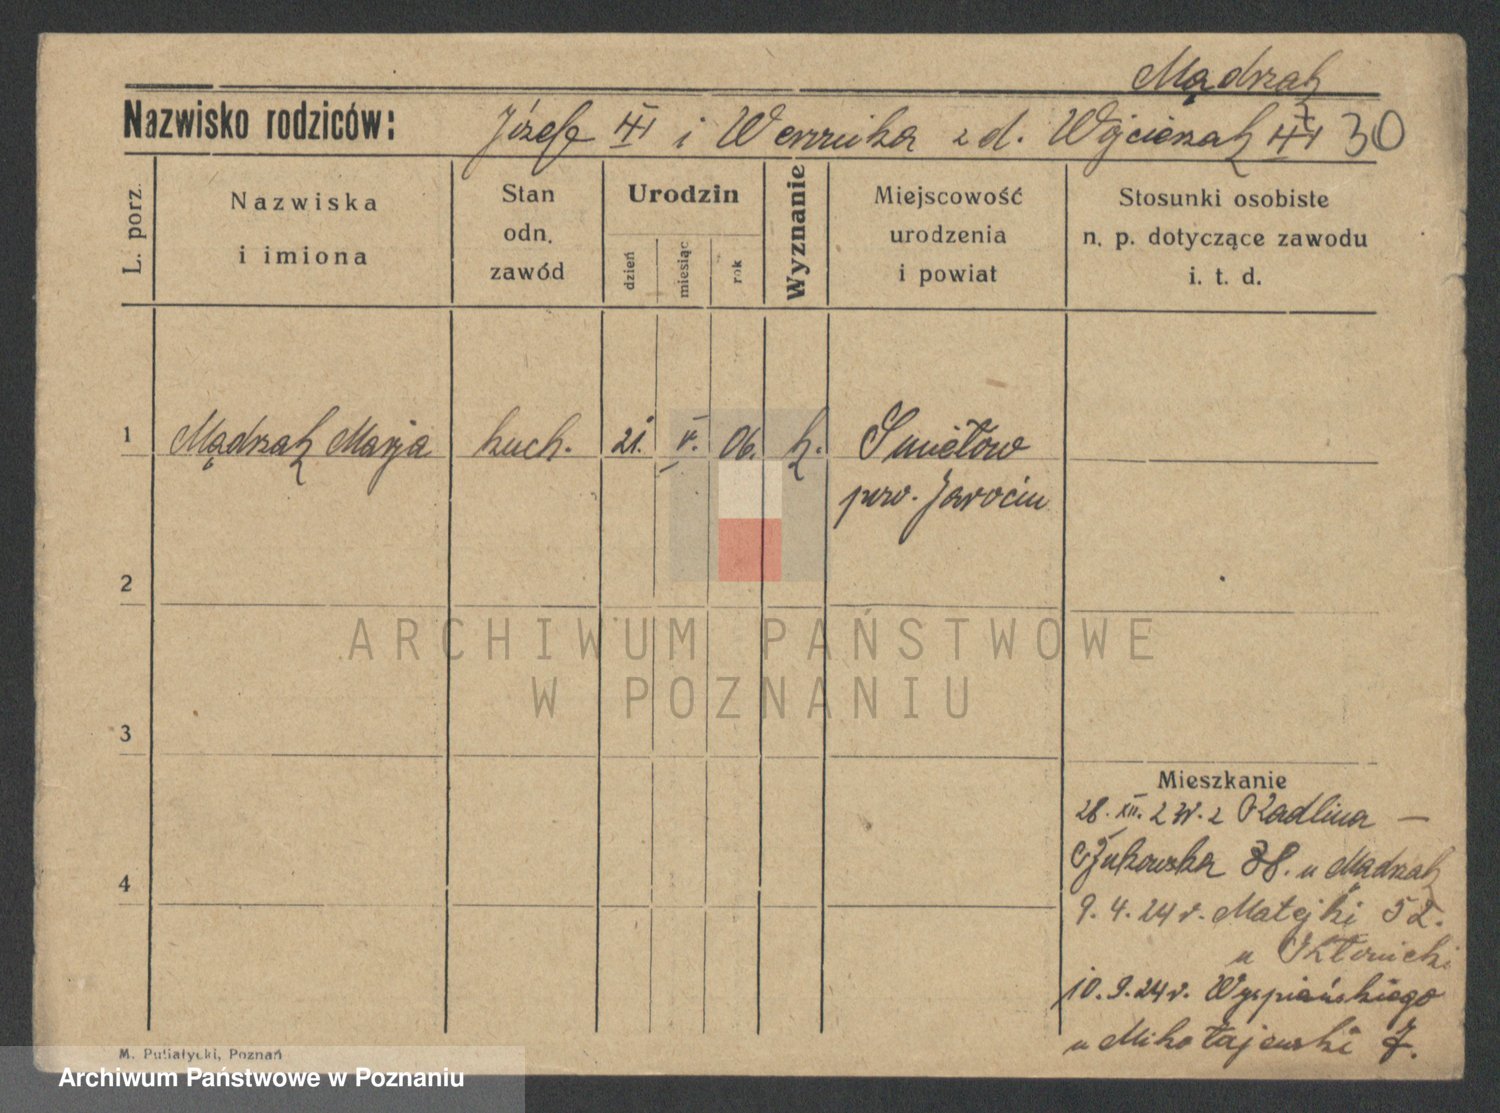 Mądrzak
Nazwisko rodziców: Józefa i Weronika z d. Wojcieszak 30
L. porz.
Nazwiska
i imiona
Stan
odn.
zawód
Urodzin
dzień
miesiąc
rok
Wyznanie
Miejscowość
urodzenia
i powiat
Stosunki osobiste
n. p. dotyczące zawodu
i. t. d.
1 Mądrzak Marja kuch. 21. V. 06. k. Śmiełow
pow. Jarocin
2
ARCHIWUM PAŃSTWOWE
W POZNANIU
3
4
Mieszkanie
28. XII. 2 Radlina —
Żukowska 38. u Mądrzak
9. 4. 24 r. Matejki 52.
u
10. 9. 24 r. Wyspiańskiego
u Mikołajewski 7.
M. Putiatycki, Poznań
Archiwum Państwowe w Poznaniu